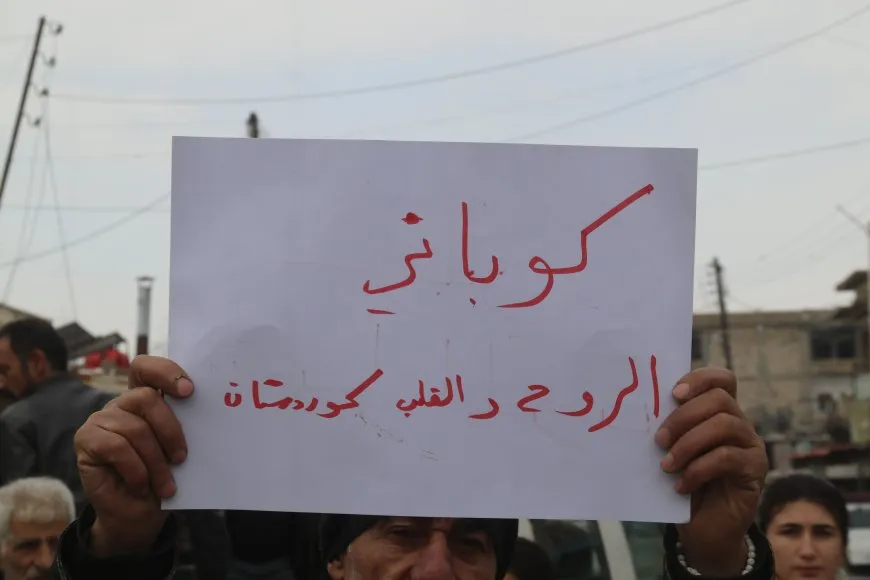 كوباني
الروح و القلب كوردستان